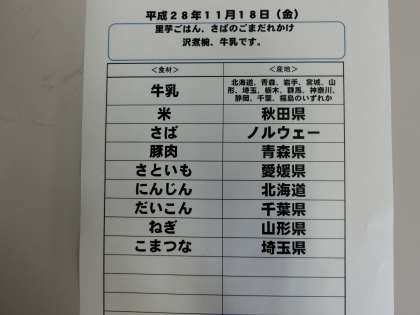 平成28年11月18日（金）
里芋ごはん、さばのごまだれかけ
沢煮椀、牛乳です。
＜食材＞ ＜産地＞
牛乳 北海道、青森、岩手、宮城、山
形、埼玉、栃木、群馬、神奈川、
静岡、千葉、福島のいずれか
米 秋田県
さば ノルウェー
豚肉 青森県
さといも 愛媛県
にんじん 北海道
だいこん 千葉県
ねぎ 山形県
こまつな 埼玉県